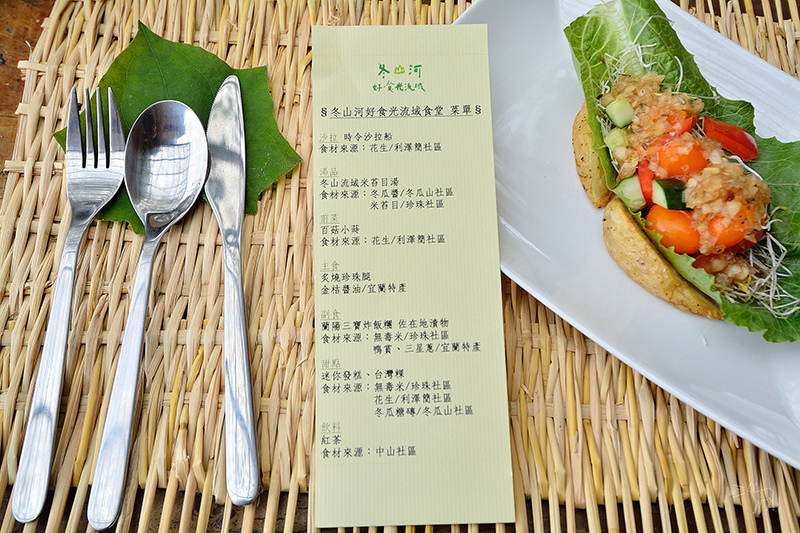 冬山河
好食光流域
§冬山河好食光流域食堂 菜單§
沙拉 時令沙拉船
食材來源：花生/利澤簡社區
湯品
冬山流域米苔目湯
食材來源：冬瓜醬/冬瓜山社區
米苔目/珍珠社區
前菜
百菇小蒔
食材來源：花生/利澤簡社區
主食
炙燒珍珠腿
金桔醬油/宜蘭特產
副食
蘭陽三寶炸飯糰 佐在地漬物
食材來源：無毒米/珍珠社區
鴨賞、三星蔥/宜蘭特產
甜點
迷你發糕、台灣粿
食材來源：無毒米/珍珠社區
花生/利澤簡社區
冬瓜糖磚/冬瓜山社區
飲料
紅茶
食材來源：中山社區